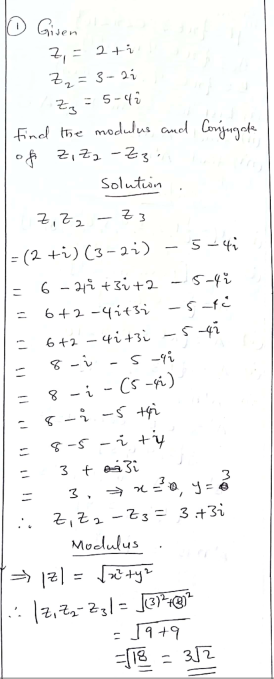 ① Given
Z₁ = 2+i
Z₂ = 3-2i
Z₃ = 5-4i
find the modulus and Conjugate
of Z₁Z₂ - Z₃.
Solution.
Z₁Z₂ - Z₃
= (2+i)(3-2i) - 5-4i
= 6-4i+3i+2 - 5-4i
= 6+2-4i+3i - 5-4i
= 6+2-4i+3i - 5-4i
= 8-i - 5-4i
= 8-i-(5-4i)
= 8-i-5+4i
= 8-5-i+4
= 3+3i
= 3. ⇒ x=3, y=3
∴ Z₁Z₂-Z₃ = 3+3i
Modulus.
⇒ |Z| = √x²+y²
∴ |Z₁Z₂-Z₃| = √(3)²+(3)²
= √9+9
= √18 = 3√2